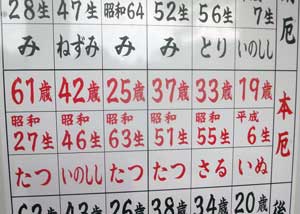 28生 47生 昭和64 52生 56生 7生 厄
み ねずみ み み とり いのしし
61歳 42歳 25歳 37歳 33歳 19歳 本厄
昭和 昭和 昭和 昭和 昭和 平成
27生 46生 63生 51生 55生 6生
たつ いのしし たつ たつ さる いぬ
62歳 43歳 26歳 38歳 34歳 20歳 後